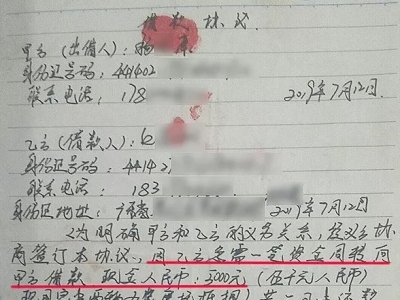 借款协议
甲方(出借人):杨
身份证号码:441402
联系电话:178
2019年7月12日.
乙方(借款人):
身份证号码:4414
联系电话:183
身份证地址:
2019年7月12日
为明确甲方和乙方的义务关系,经双方协
商签订本协议,因乙方急需一笔资金周转,向
甲方借款 现金人民币:5000元(伍千元人民币)